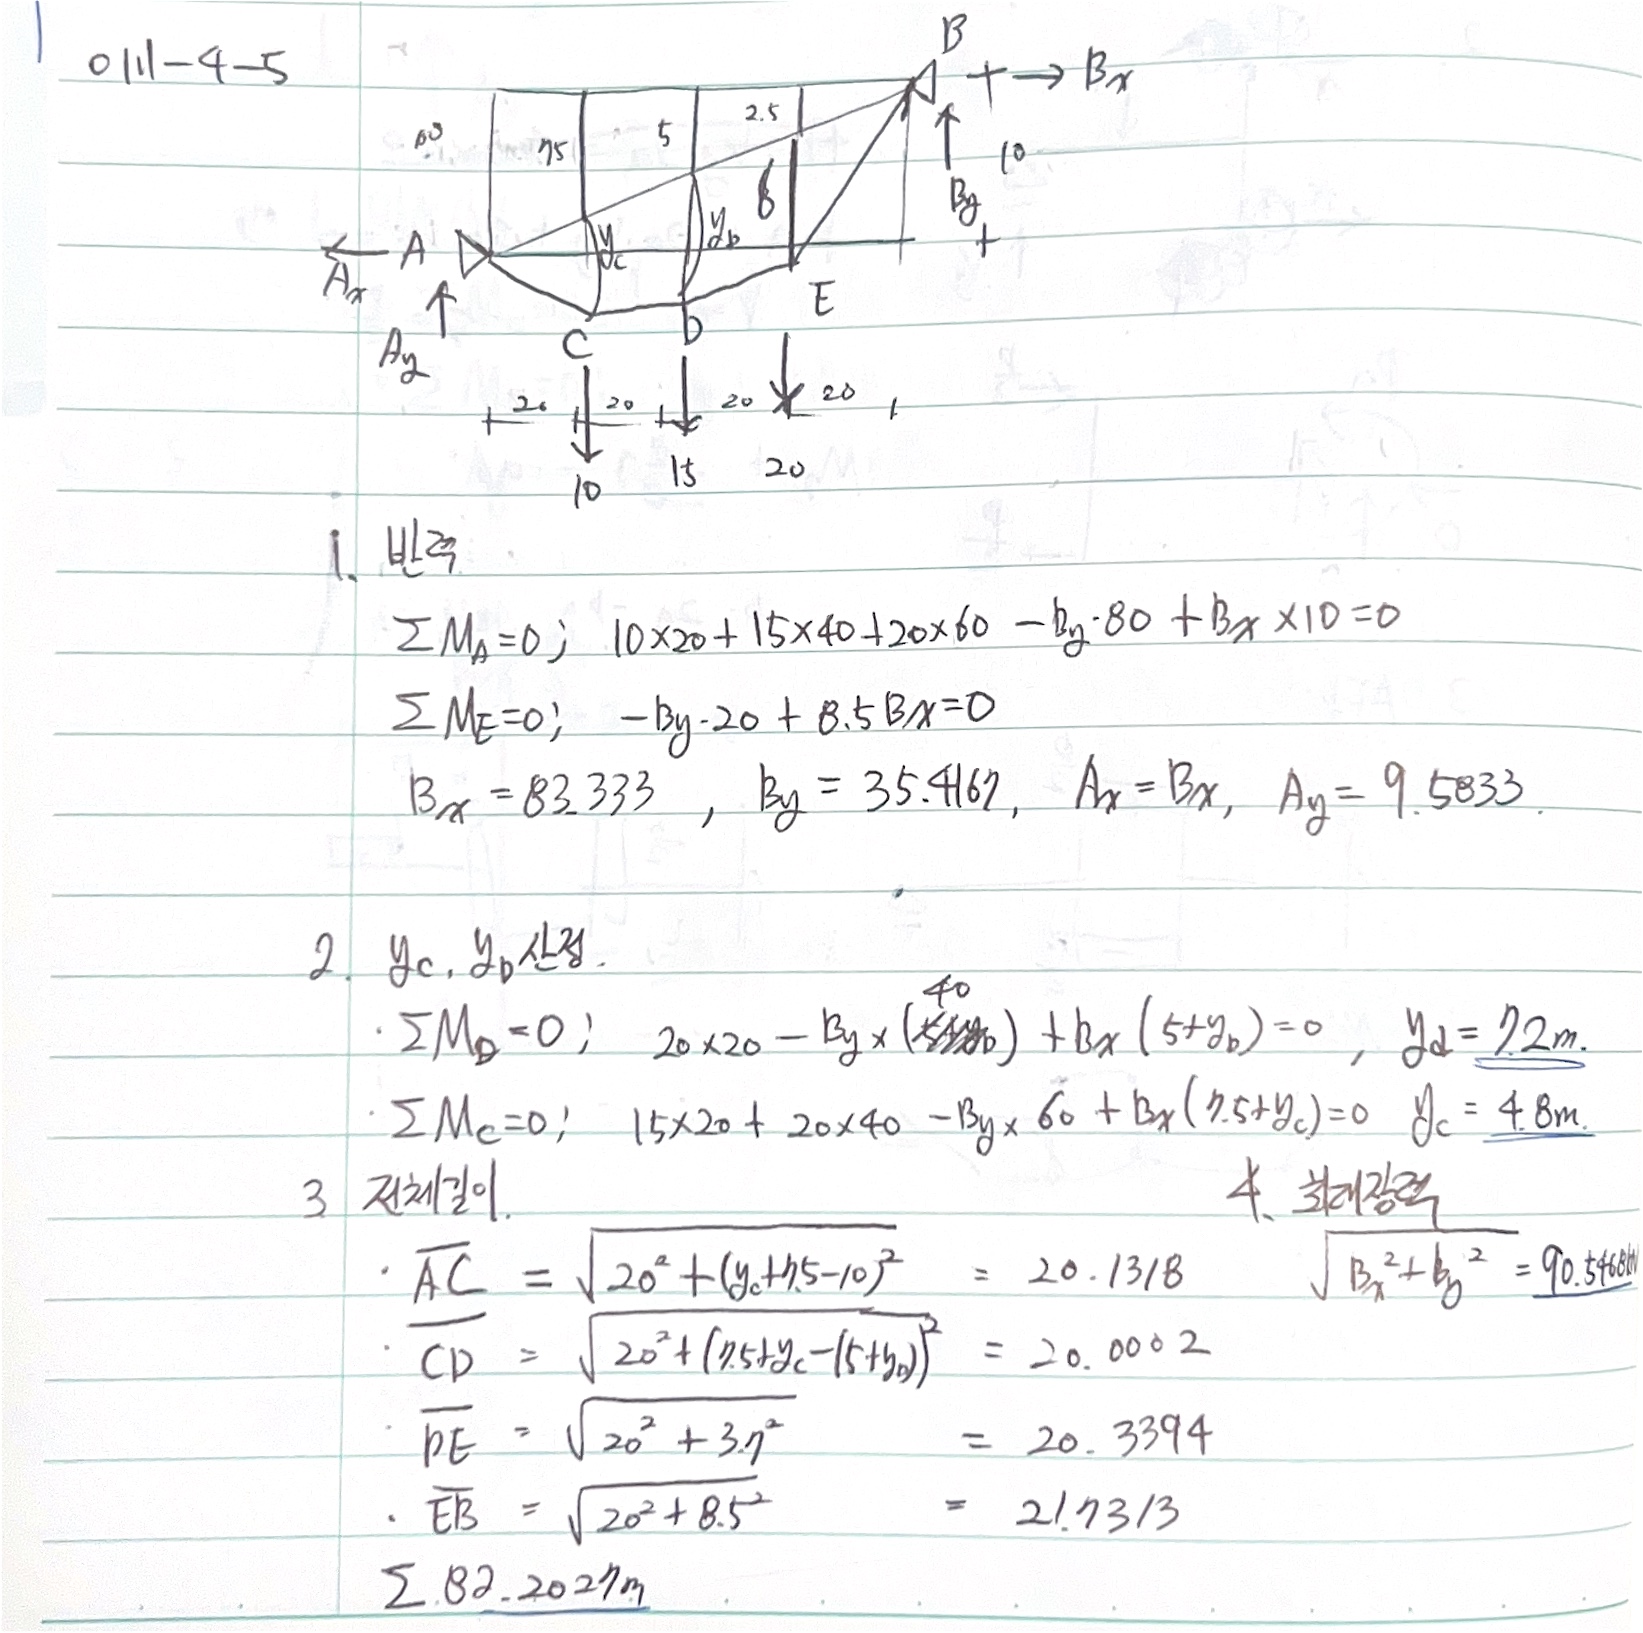 0111-4-5
B
+ → Bx
10
7.5
5
2.5
6
10
By
+
yc
yD
A
Ax
Ay
C
D
E
20
20
20
20
10
15
20
1. 반력
ΣMA=0; 10×20+15×40+20×60 -By·80 +Bx×10=0
ΣME=0; -By·20 + 8.5Bx=0
Bx = 83.333 , By = 35.4167, Ax = Bx, Ay = 9.5833.
2. yc, yD 산정.
40
· ΣMD=0; 20×20 - By×( ) +Bx(5+yD)=0 , yd = 7.2m.
· ΣMC=0; 15×20 + 20×40 -By× 60 +Bx(7.5+yc)=0 yc = 4.8m.
3 전체길이.
4. 최대장력
· AC = √20²+(yc+7.5-10)² = 20.1318
√Bx²+By² = 90.5468kN
· CD = √20²+(7.5+yc-(5+yD))² = 20.0002
· DE = √20²+3.7² = 20.3394
· EB = √20²+8.5² = 21.7313
Σ 82.2027m